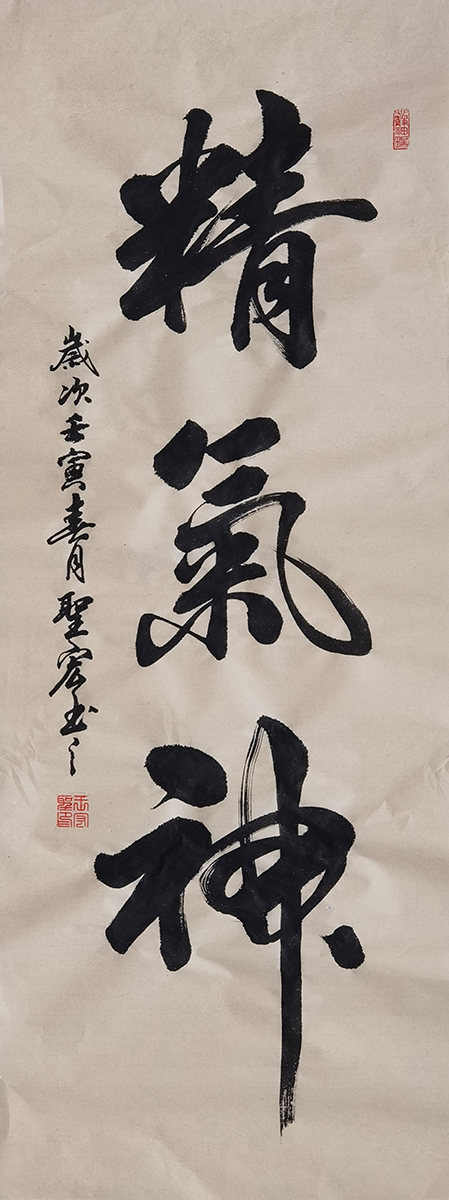 精氣神
歲次壬寅春月聖宏書之